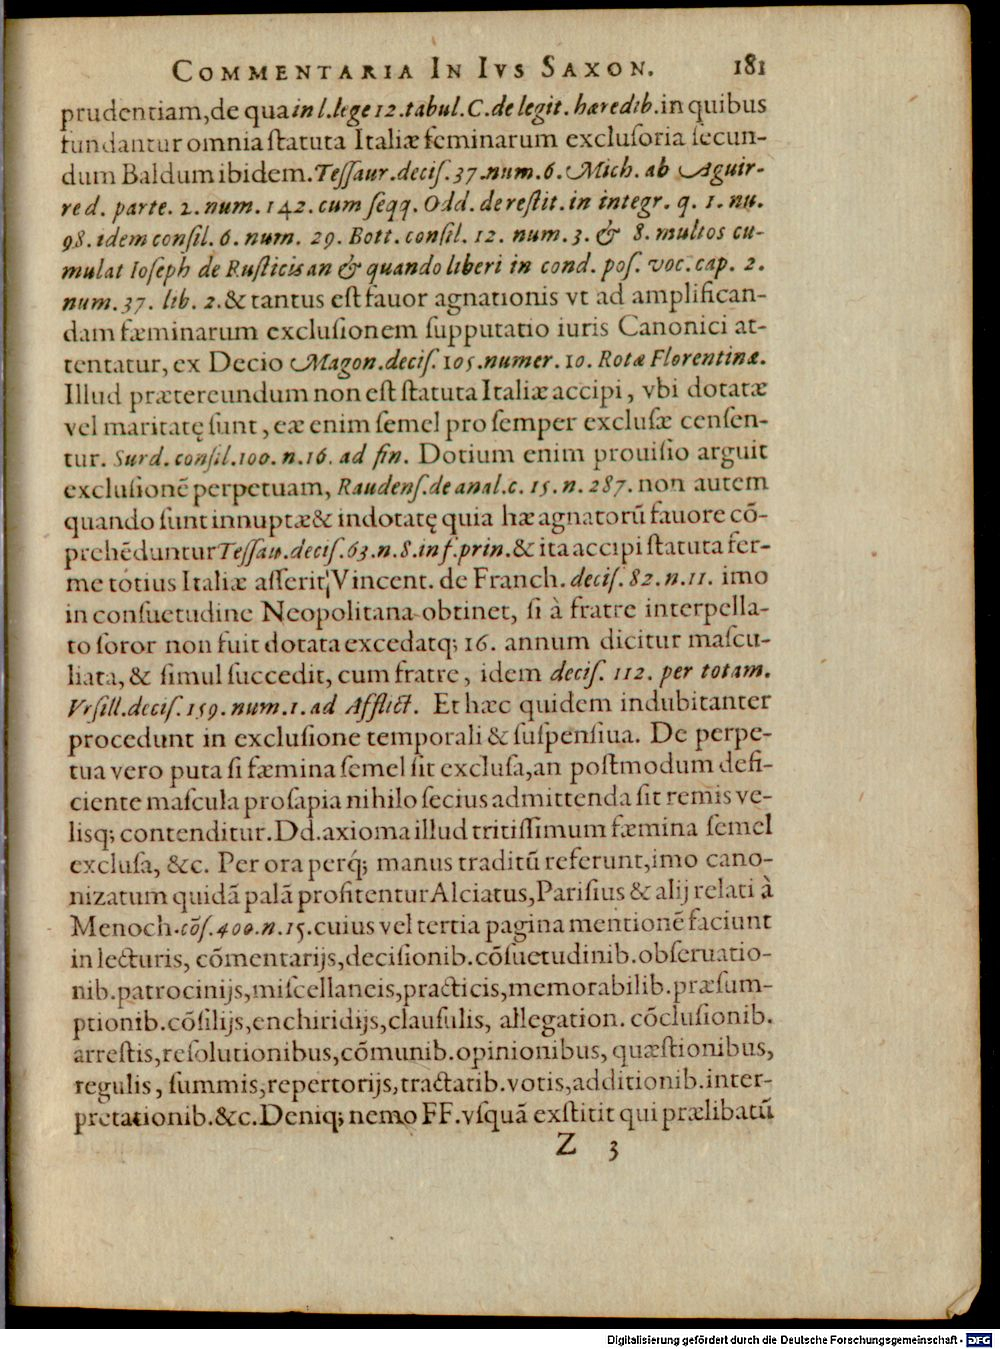 COMMENTARIA IN IVS SAXON. 181
prudentiam, de qua in l. lege 12. tabul. C. de legit. hæredib. in quibus
fundantur omnia ſtatuta Italiæ feminarum excluſoria ſecun-
dum Baldum ibidem. Teſſaur. deciſ. 37. num. 6. Mich. ab Aguir-
re d. parte. 2. num. 142. cum ſeqq. Odd. de reſtit. in integr. q. 1. nu.
98. idem conſil. 6. num. 29. Bott. conſil. 12. num. 3. & 8. multos cu-
mulat Ioſeph de Ruſticis an & quando liberi in cond. poſ. voc. cap. 2.
num. 37. lib. 2. & tantus eſt fauor agnationis vt ad amplifican-
dam fæminarum excluſionem ſupputatio iuris Canonici at-
tentatur, ex Decio Magon. deciſ. 105. numer. 10. Rotæ Florentinæ.
Illud prætereundum non eſt ſtatuta Italiæ accipi, vbi dotatæ
vel maritatę ſunt, eæ enim ſemel pro ſemper excluſæ cenſen-
tur. Surd. conſil. 100. n. 16. ad fin. Dotium enim prouiſio arguit
excluſionē perpetuam, Raudenſ. de anal. c. 15. n. 287. non autem
quando ſunt innuptæ & indotatę quia hæ agnatorū fauore cō-
prehēduntur Teſſau. deciſ. 63. n. 8. inf. prin. & ita accipi ſtatuta fer-
me totius Italiæ aſſerit Vincent. de Franch. deciſ. 82. n. 11. imo
in conſuetudine Neopolitana obtinet, ſi à fratre interpella-
to ſoror non fuit dotata excedatq; 16. annum dicitur maſcu-
liata, & ſimul ſuccedit, cum fratre, idem deciſ. 112. per totam.
Vrſill. deciſ. 159. num. 1. ad Afflict. Et hæc quidem indubitanter
procedunt in excluſione temporali & ſuſpenſiua. De perpe-
tua vero puta ſi fæmina ſemel ſit excluſa, an poſtmodum defi-
ciente maſcula proſapia nihilo ſecius admittenda ſit remis ve-
lisq; contenditur. Dd. axioma illud tritiſſimum fæmina ſemel
excluſa, &c. Per ora perq́; manus traditū referunt, imo cano-
nizatum quidā palā profitentur Alciatus, Pariſius & alij relati à
Menoch. cōſ. 400. n. 15. cuius vel tertia pagina mentionē faciunt
in lecturis, cōmentarijs, deciſionib. cōſuetudinib. obſeruatio-
nib. patrocinijs, miſcellaneis, practicis, memorabilib. præſum-
ptionib. cōſilijs, enchiridijs, clauſulis, allegation. cōcluſionib.
arreſtis, reſolutionibus, cōmunib. opinionibus, quæſtionibus,
regulis, ſummis, repertorijs, tractatib. votis, additionib. inter-
pretationib. &c. Deniq; nemo FF. vſquā exſtitit qui prælibatū
Z 3
Digitalisierung gefördert durch die Deutsche Forschungsgemeinschaft - DFG